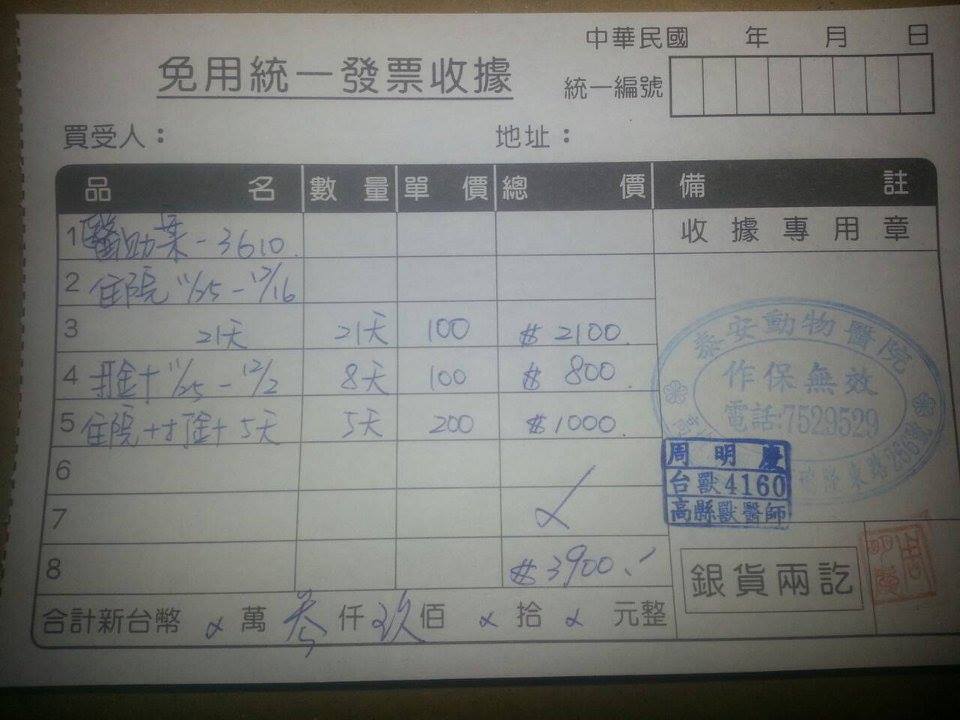 中華民國 年 月 日
免用統一發票收據
統一編號
買受人： 地址：
品名 數量 單價 總價 備註
1 醫助業-3610 收據專用章
2 住院 11/25-12/16
3 21天 21天 100 $2100
4 打金+ 11/25-12/2 8天 100 $800
5 住院+打金+5天 5天 200 $1000
6
7
8 $3900
合計新台幣 萬 叁仟 玖佰 拾 元整
泰安動物醫院
作保無效
電話:7529529
東路266號
周明慶
台獸4160
高縣獸醫師
銀貨兩訖